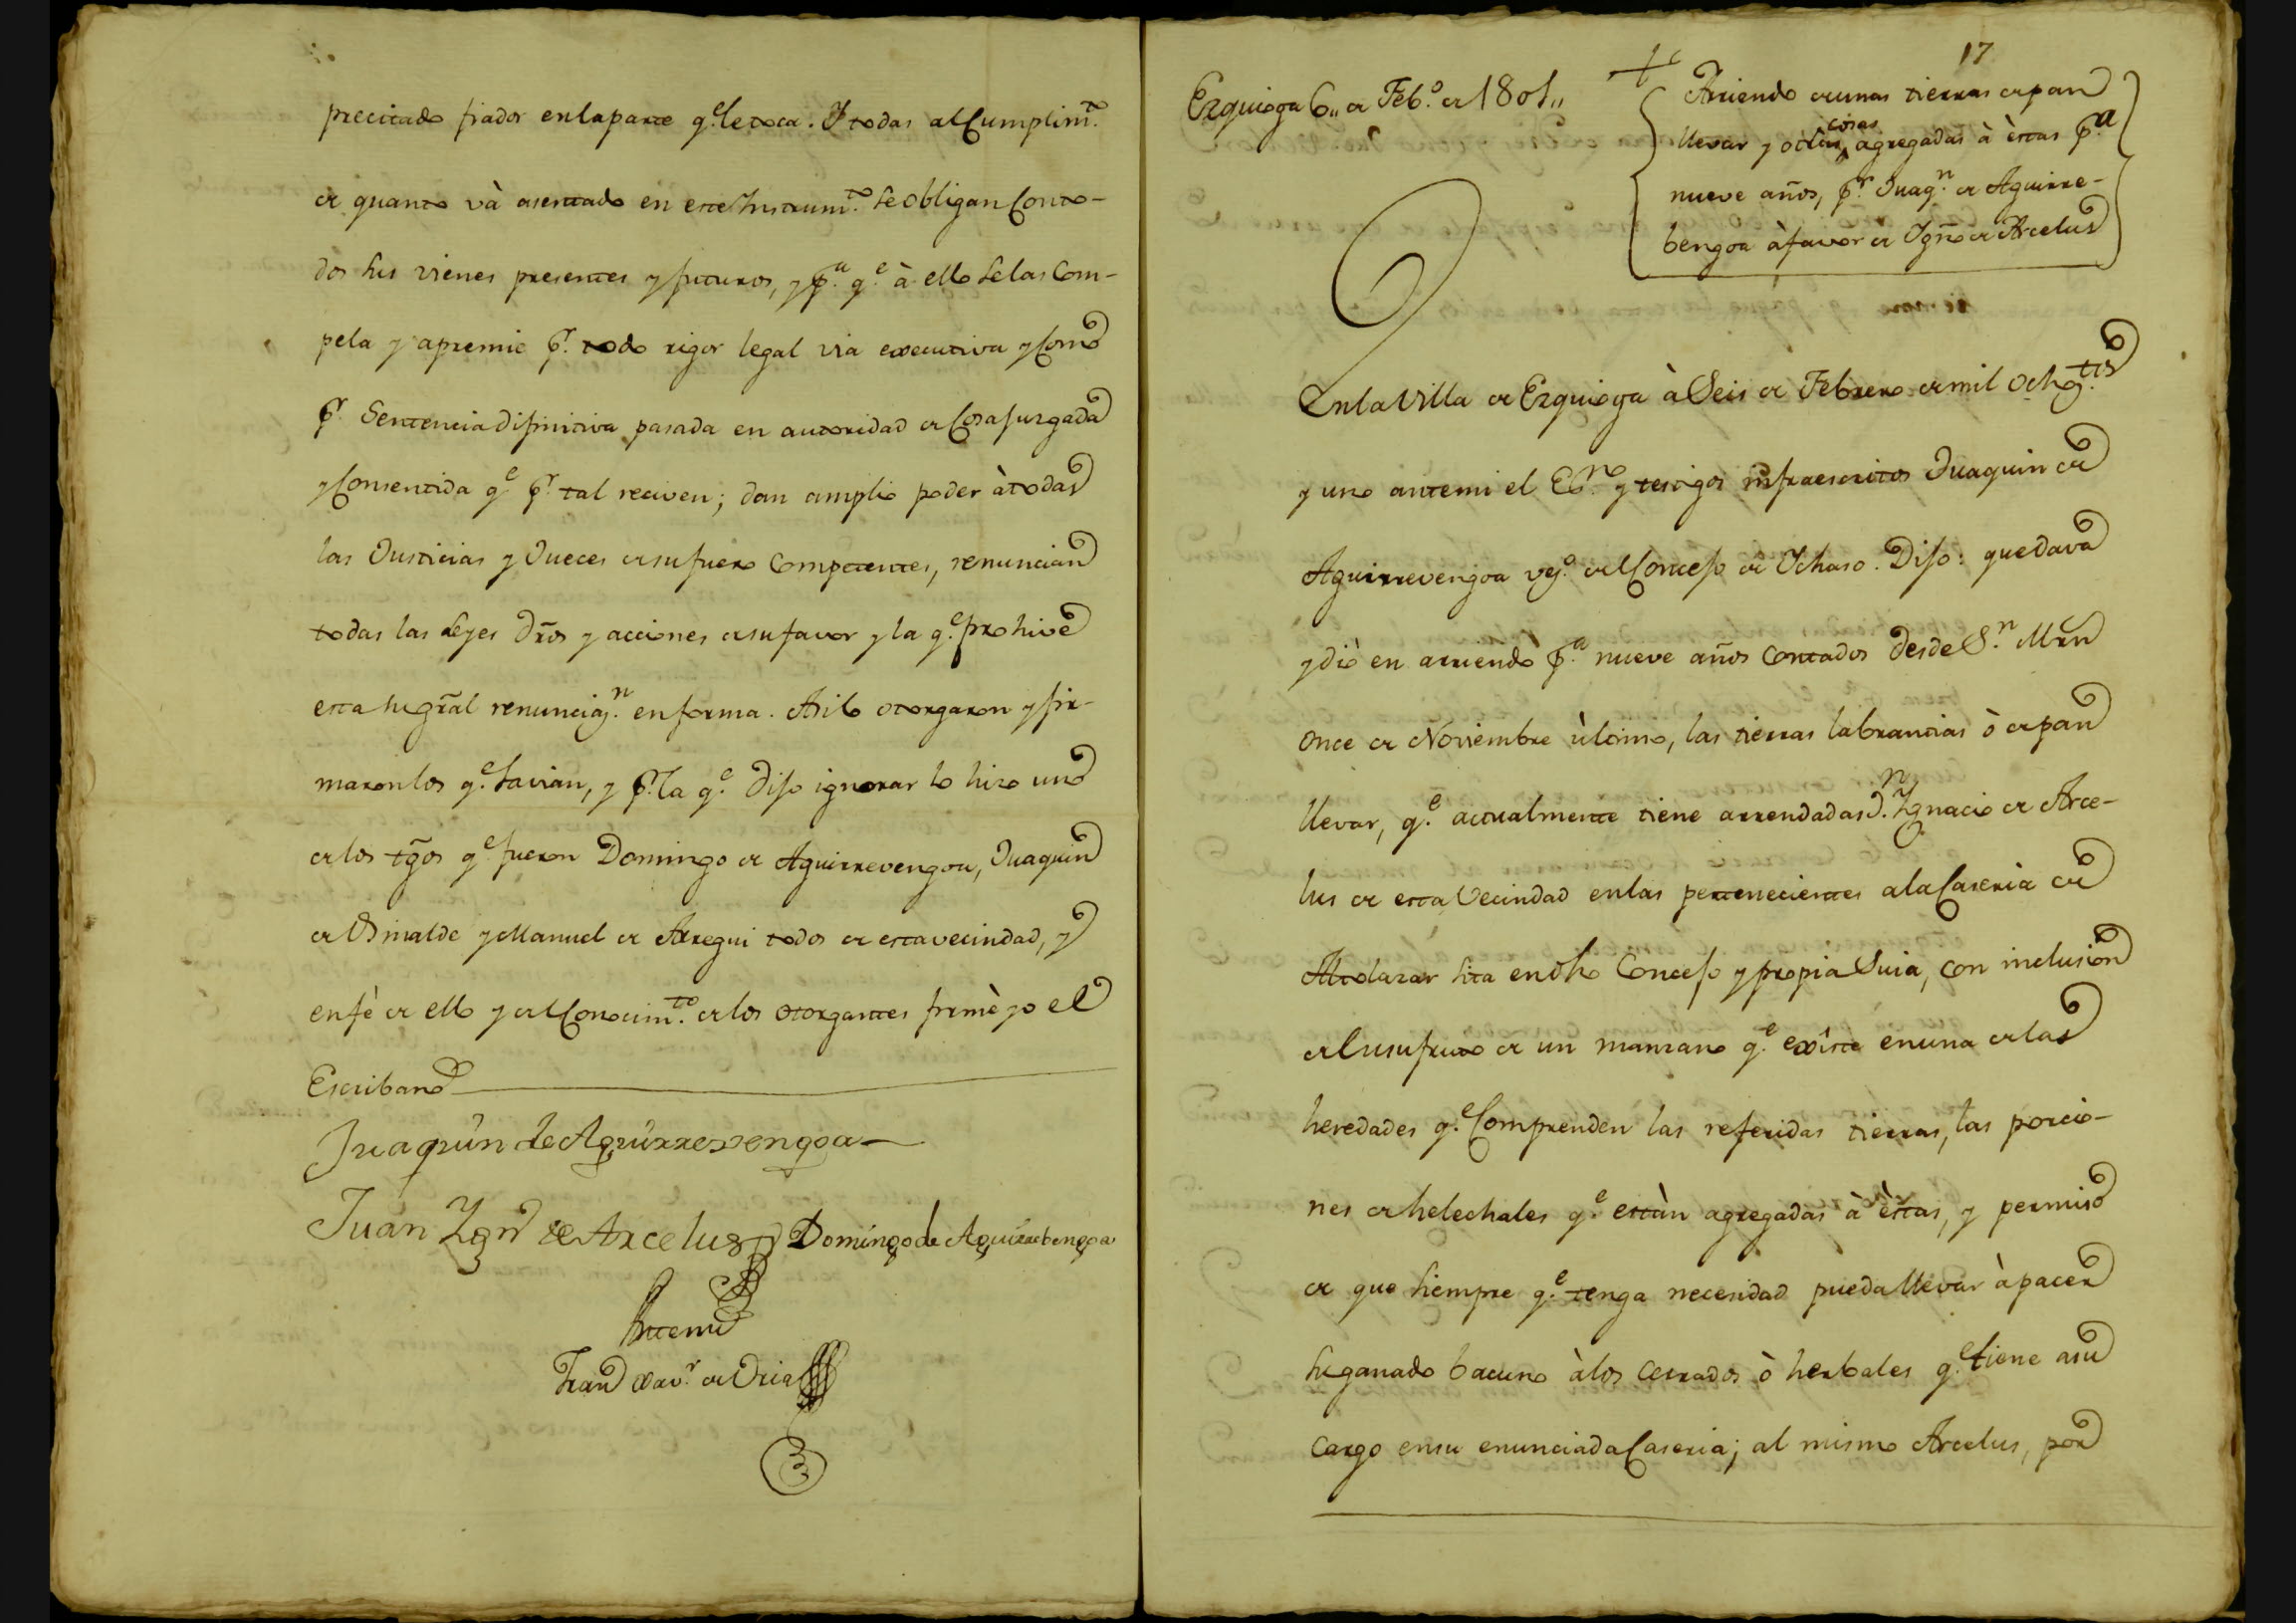 precitado fiador en la parte q.e le toca. Y todas al Cumplim.to
de quanto và asentado en este Instrum.to se obligan Con to-
dos sus vienes presentes y futuros, y p.a q.e à ello se las Com-
pela y apremie p.r todo rigor legal via executiva y Como
p.r Sentencia difinitiva pasada en autoridad de Cosa Juzgada
y Consentida q.e p.r tal reciven; dan amplio poder à todas
las Justicias y Jueces de su fuero Competentes, renuncian
todas las Leyes Dr̃os y acciones de su favor y la q.e prohive
esta su gr̃al renunciaz.n en forma. Asi lo otorgaron y fir-
maron los q.e savian, y p.r la q.e Dijo ignorar lo hizo uno
de los tg̃os q.e fueron Domingo de Aguirrevengoa, Juaquin
de Vsmalde y Manuel de Arregui todos de esta vecindad, y
en fè de ello y del Conocim.to de los otorgantes firmè yo el
Escribano
Juaquin de Aguirrevengoa
Juan Ygn.o de Arcelus Domingo de Aguirrebengoa
Ante mi
Fran.co Xav.r de Oria
17
Ezquioga 6,, de Feb.o de 1801,,
Arriendo de unas tierras de pan
llevar y otras cosas agregadas à èstas p.a
nueve años, p.r Juaq.n de Aguirre-
bengoa à favor de Ygñ.o de Arcelus
En la Villa de Ezquioga à Seis de Febrero de mil ochoz.tos
y uno ante mi el Es.no y testigos infraescritos Juaquin de
Aguirrevengoa vez.o del Concejo de Ychaso. Dijo: quedava
y diò en arriendo p.a nueve años Contados desde S.n Mrñ
once de Noviembre ùltimo, las tierras labrantias ò de pan
llevar, q.e actualmente tiene arrendadas D.n Ygnacio de Arce-
lus de esta Vecindad en las pertenecientes a la Caseria de
Altolazar sita en dho Concejo y propia Suia, con inclusion
del usufruto de un manzano q.e exîste en una de las
heredades q.e Comprenden las referidas tierras, las porcio-
nes de helechales q.e estàn agregadas à èstas, y permiso
de que siempre q.e tenga necesidad pueda llevar à pacer
su ganado bacuno à los Cerrados ò herbales q.e tiene a su
Cargo en su enunciada Caseria; al mismo Arcelus, por